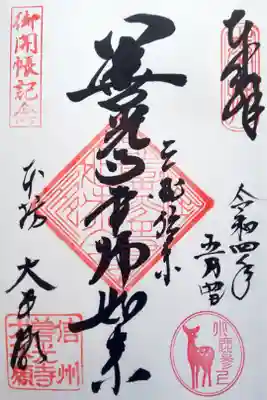 奉拝
令和四年
五月
三国伝来
善光寺本師如来
御開帳記念
本坊
大本願
信州
善光寺
大本願